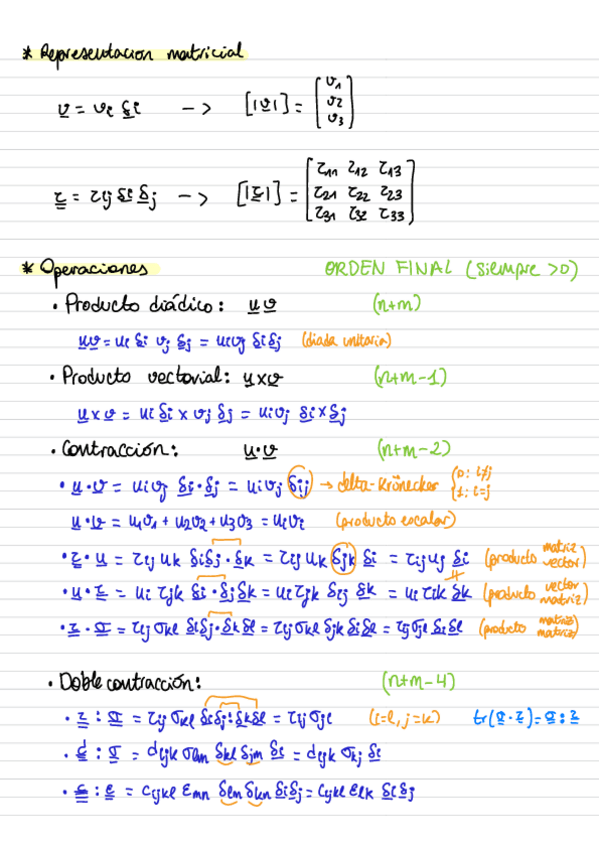 * Representacion matricial
v = vi δi -> [|v|] = [v1 v2 v3]
τ = τij δi δj -> [|τ|] = [τ11 τ12 τ13
τ21 τ22 τ23
τ31 τ32 τ33]
* Operaciones ORDEN FINAL (siempre >0)
• Producto diádico: u v (n+m)
uv = ui δi vj δj = uivj δiδj (diada unitaria)
• Producto vectorial: u x v (n+m-1)
u x v = ui δi x vj δj = uivj δi x δj
• Contracción: u·v (n+m-2)
• u·v = uivj δi·δj = uivj δij → delta-Krönecker {0: i≠j
1: i=j
u·v = u1v1 + u2v2 + u3v3 = uivi (producto escalar)
• τ·u = τij uk δiδj·δk = τij uk δjk δi = τijuj δi (producto matriz vector)
• u·τ = ui τjk δi·δjδk = ui τjk δij δk = ui τik δk (producto vector matriz)
• τ·σ = τij σkl δiδj·δkδl = τij σkl δjk δiδl = τij σjl δiδl (producto matriz matriz)
• Doble contracción: (n+m-4)
• τ:σ = τij σkl δiδj:δkδl = τij σji (i=l, j=k) tr(σ·τ) = σ:τ